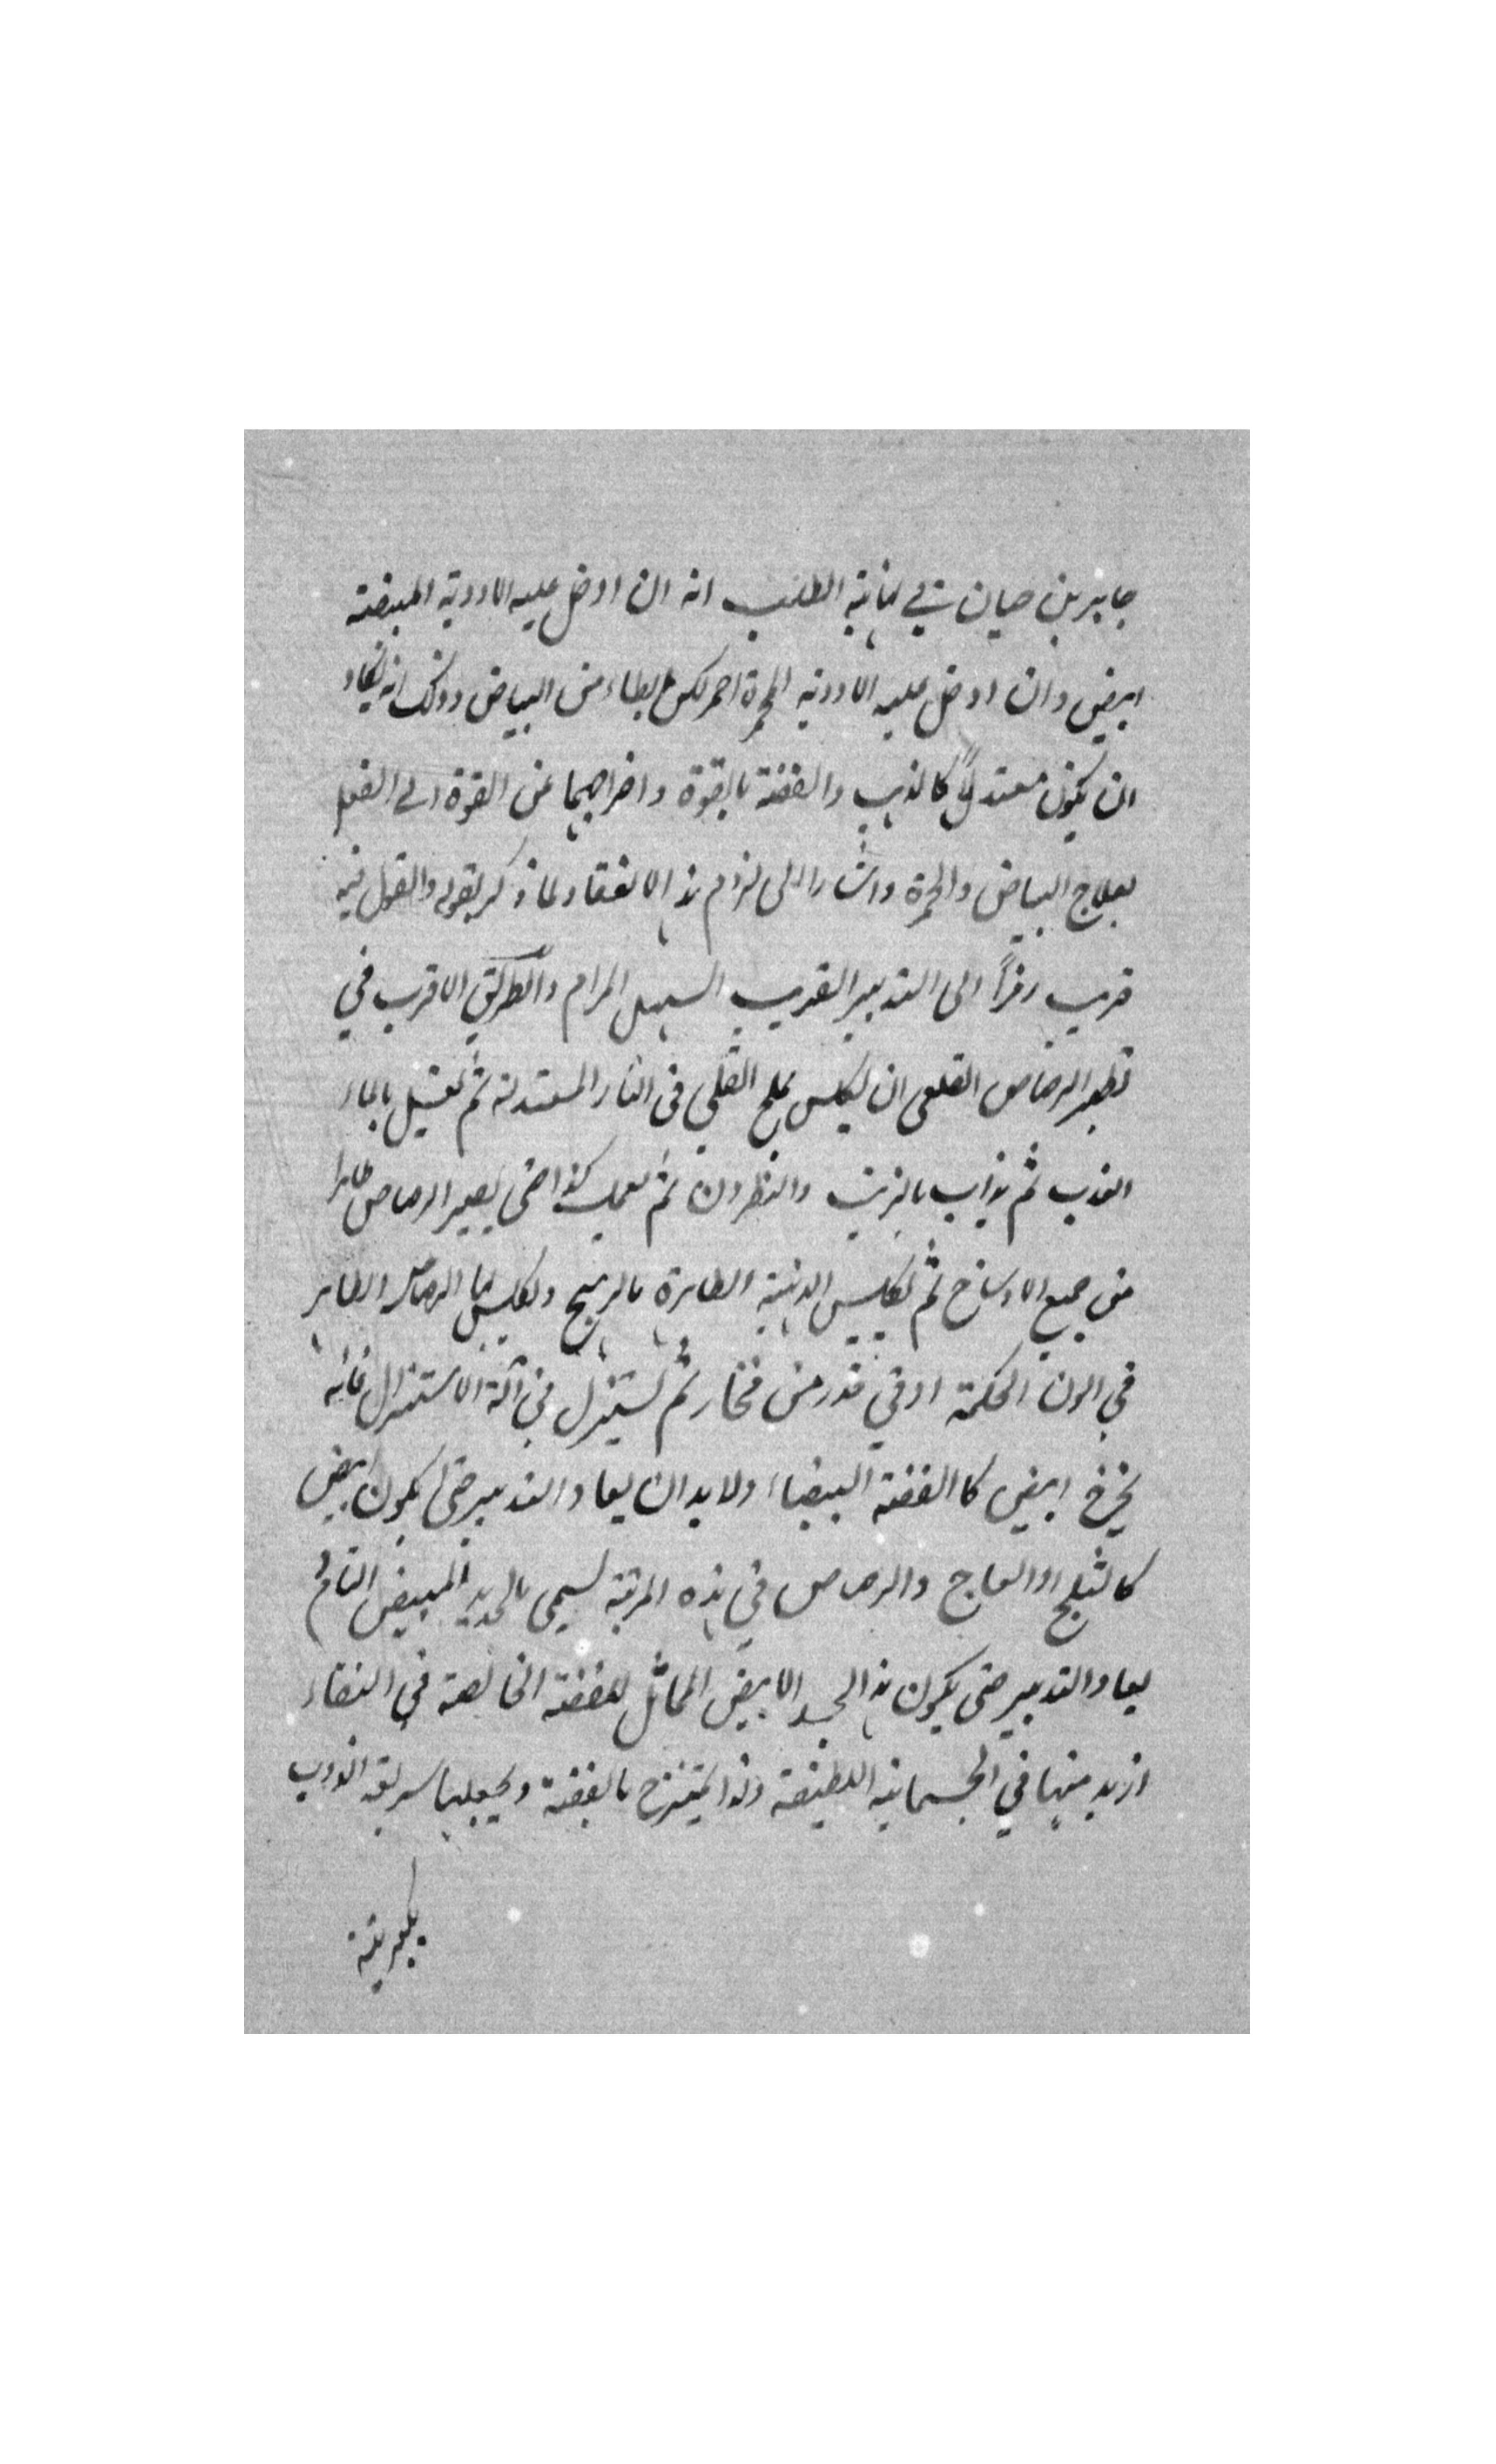 جابر بن حيان في نهاية الطلب انه ان ادخل عليه الادوية المبيضة
ابيض وان ادخل عليه الادوية المحمرة احمر لكن ابطاء من البياض وذلك انه يكاد
ان يكون معتدلاً كالذهب والفضة بالقوة واخراجهما من القوة الى الفعل
بعلاج البياض والحمرة واشار الى لزوم هذا الانعقاد لما ذكر بقوله والقول فيه
قريب رمزاً الى التدبير القريب السهل المرام والطريق الاقرب في
تطهير الرصاص القلعي ان يكلس بملح القلي في النار المعتدلة ثم يغسل بالماء
العذب ثم يذاب بالزيت والنطرون ثم يعمل كذا حتى يصير الرصاص طاهرا
من جميع الاوساخ ثم تكليس الذهبية الطاهرة بالزرنيخ وتكليس بها الرصاص الطاهر
في اتون الحكمة او في قدر من فخار ثم يستنزل في آلة الاستنزال فانه
يخرج ابيض كالفضة البيضاء ولا بد ان يعاد التدبير حتى يكون ابيض
كالثلج او العاج والرصاص في هذه المرتبة يسمى بالحديد المبيض التام
يعاد التدبير حتى يكون هذا الجسد الابيض المماثل للفضة الخالصة في النقاء
ازيد منها في الجسمانية اللطيفة ولذا يمتزج بالفضة ويجعلها سريعة الذوب